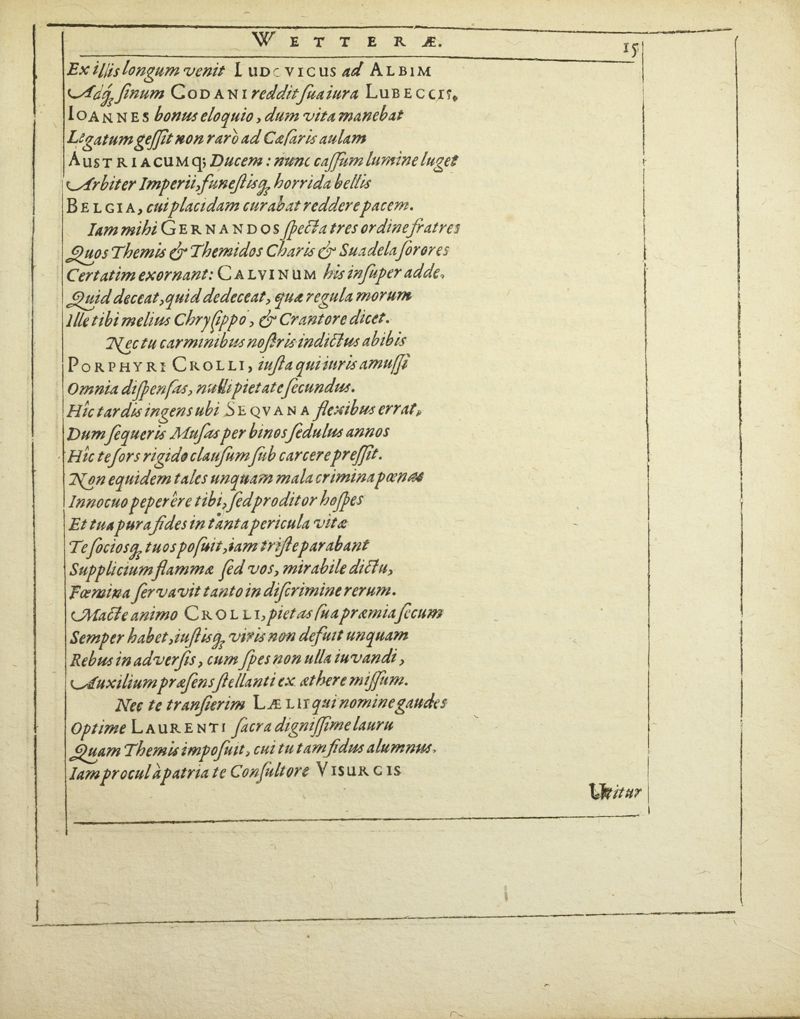 WETTERÆ. 15
Ex illis longum venit IUDCVICUS ad ALBIM
Adq́; sinum GODANI reddit sua iura LUBECCIS,
IOANNES bonus eloquio, dum vita manebat
Legatum gessit non rarò ad Cæsaris aulam
AUSTRIACUMq; Ducem: nunc cassum lumine luget
Arbiter Imperii, funestisq́; horrida bellis
BELGIA, cui placidam curabat reddere pacem.
Iam mihi GERNANDOS specta tres ordine fratres
Quos Themis & Themidos Charis & Suadela sorores
Certatim exornant: CALVINUM his insuper adde,
Quid deceat, quid dedeceat, quæ regula morum
Ille tibi melius Chrysippo, & Crantore dicet.
Nec tu carminibus nostris indictus abibis
PORPHYRI CROLLI, iusta qui iuris amussi
Omnia dispensas, nulli pietate secundus.
Hîc tardis ingens ubi SEQVANA flexibus errat,
Dum sequeris Musas per binos sedulus annos
Hîc te sors rigido clausum sub carcere pressit.
Non equidem tales unquam mala crimina pœnas
Innocuo peperêre tibi, sed proditor hospes
Et tua pura fides in tanta pericula vitæ
Te sociosq́; tuos posuit, iam triste parabant
Supplicium flammæ sed vos, mirabile dictu,
Fœmina servavit tanto in discrimine rerum.
Macte animo CROLLI, pietas sua præmia secum
Semper habet, iustisq́; viris non defuit unquam
Rebus in adversis, cum spes non ulla iuvandi,
Auxilium præsens stellanti ex æthere missum.
Nec te transierim LÆLII qui nomine gaudes
Optime LAURENTI sacra dignissime lauru
Quam Themis imposuit, cui tu tam fidus alumnus,
Iam procul à patria te Consultore VISURGIS
Utitur